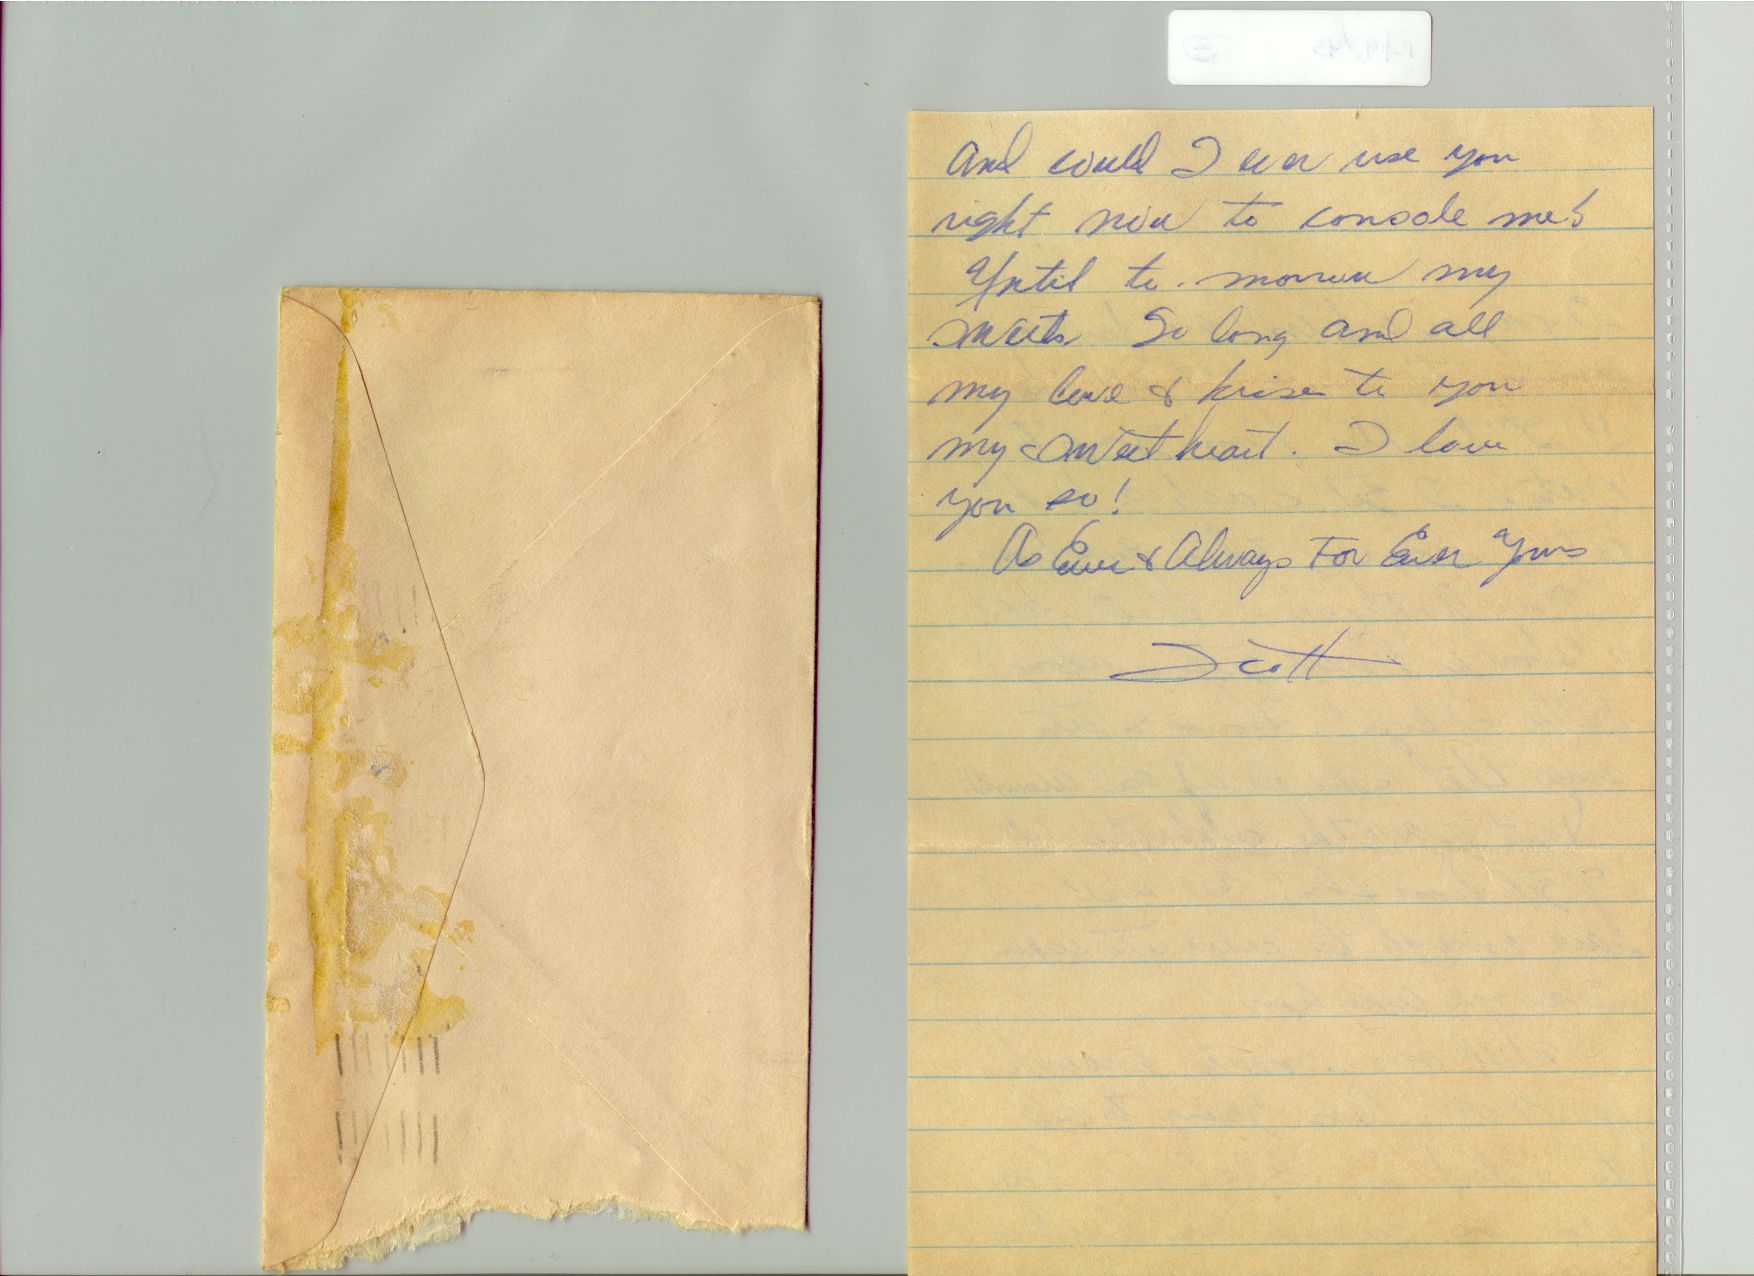 And could I ever use you
right now to console me!
Until to-morrow my
sweets. So long and all
my love & kisses to you
my sweetheart. I love
you so!
As Ever & Always For Ever Yours
Scott